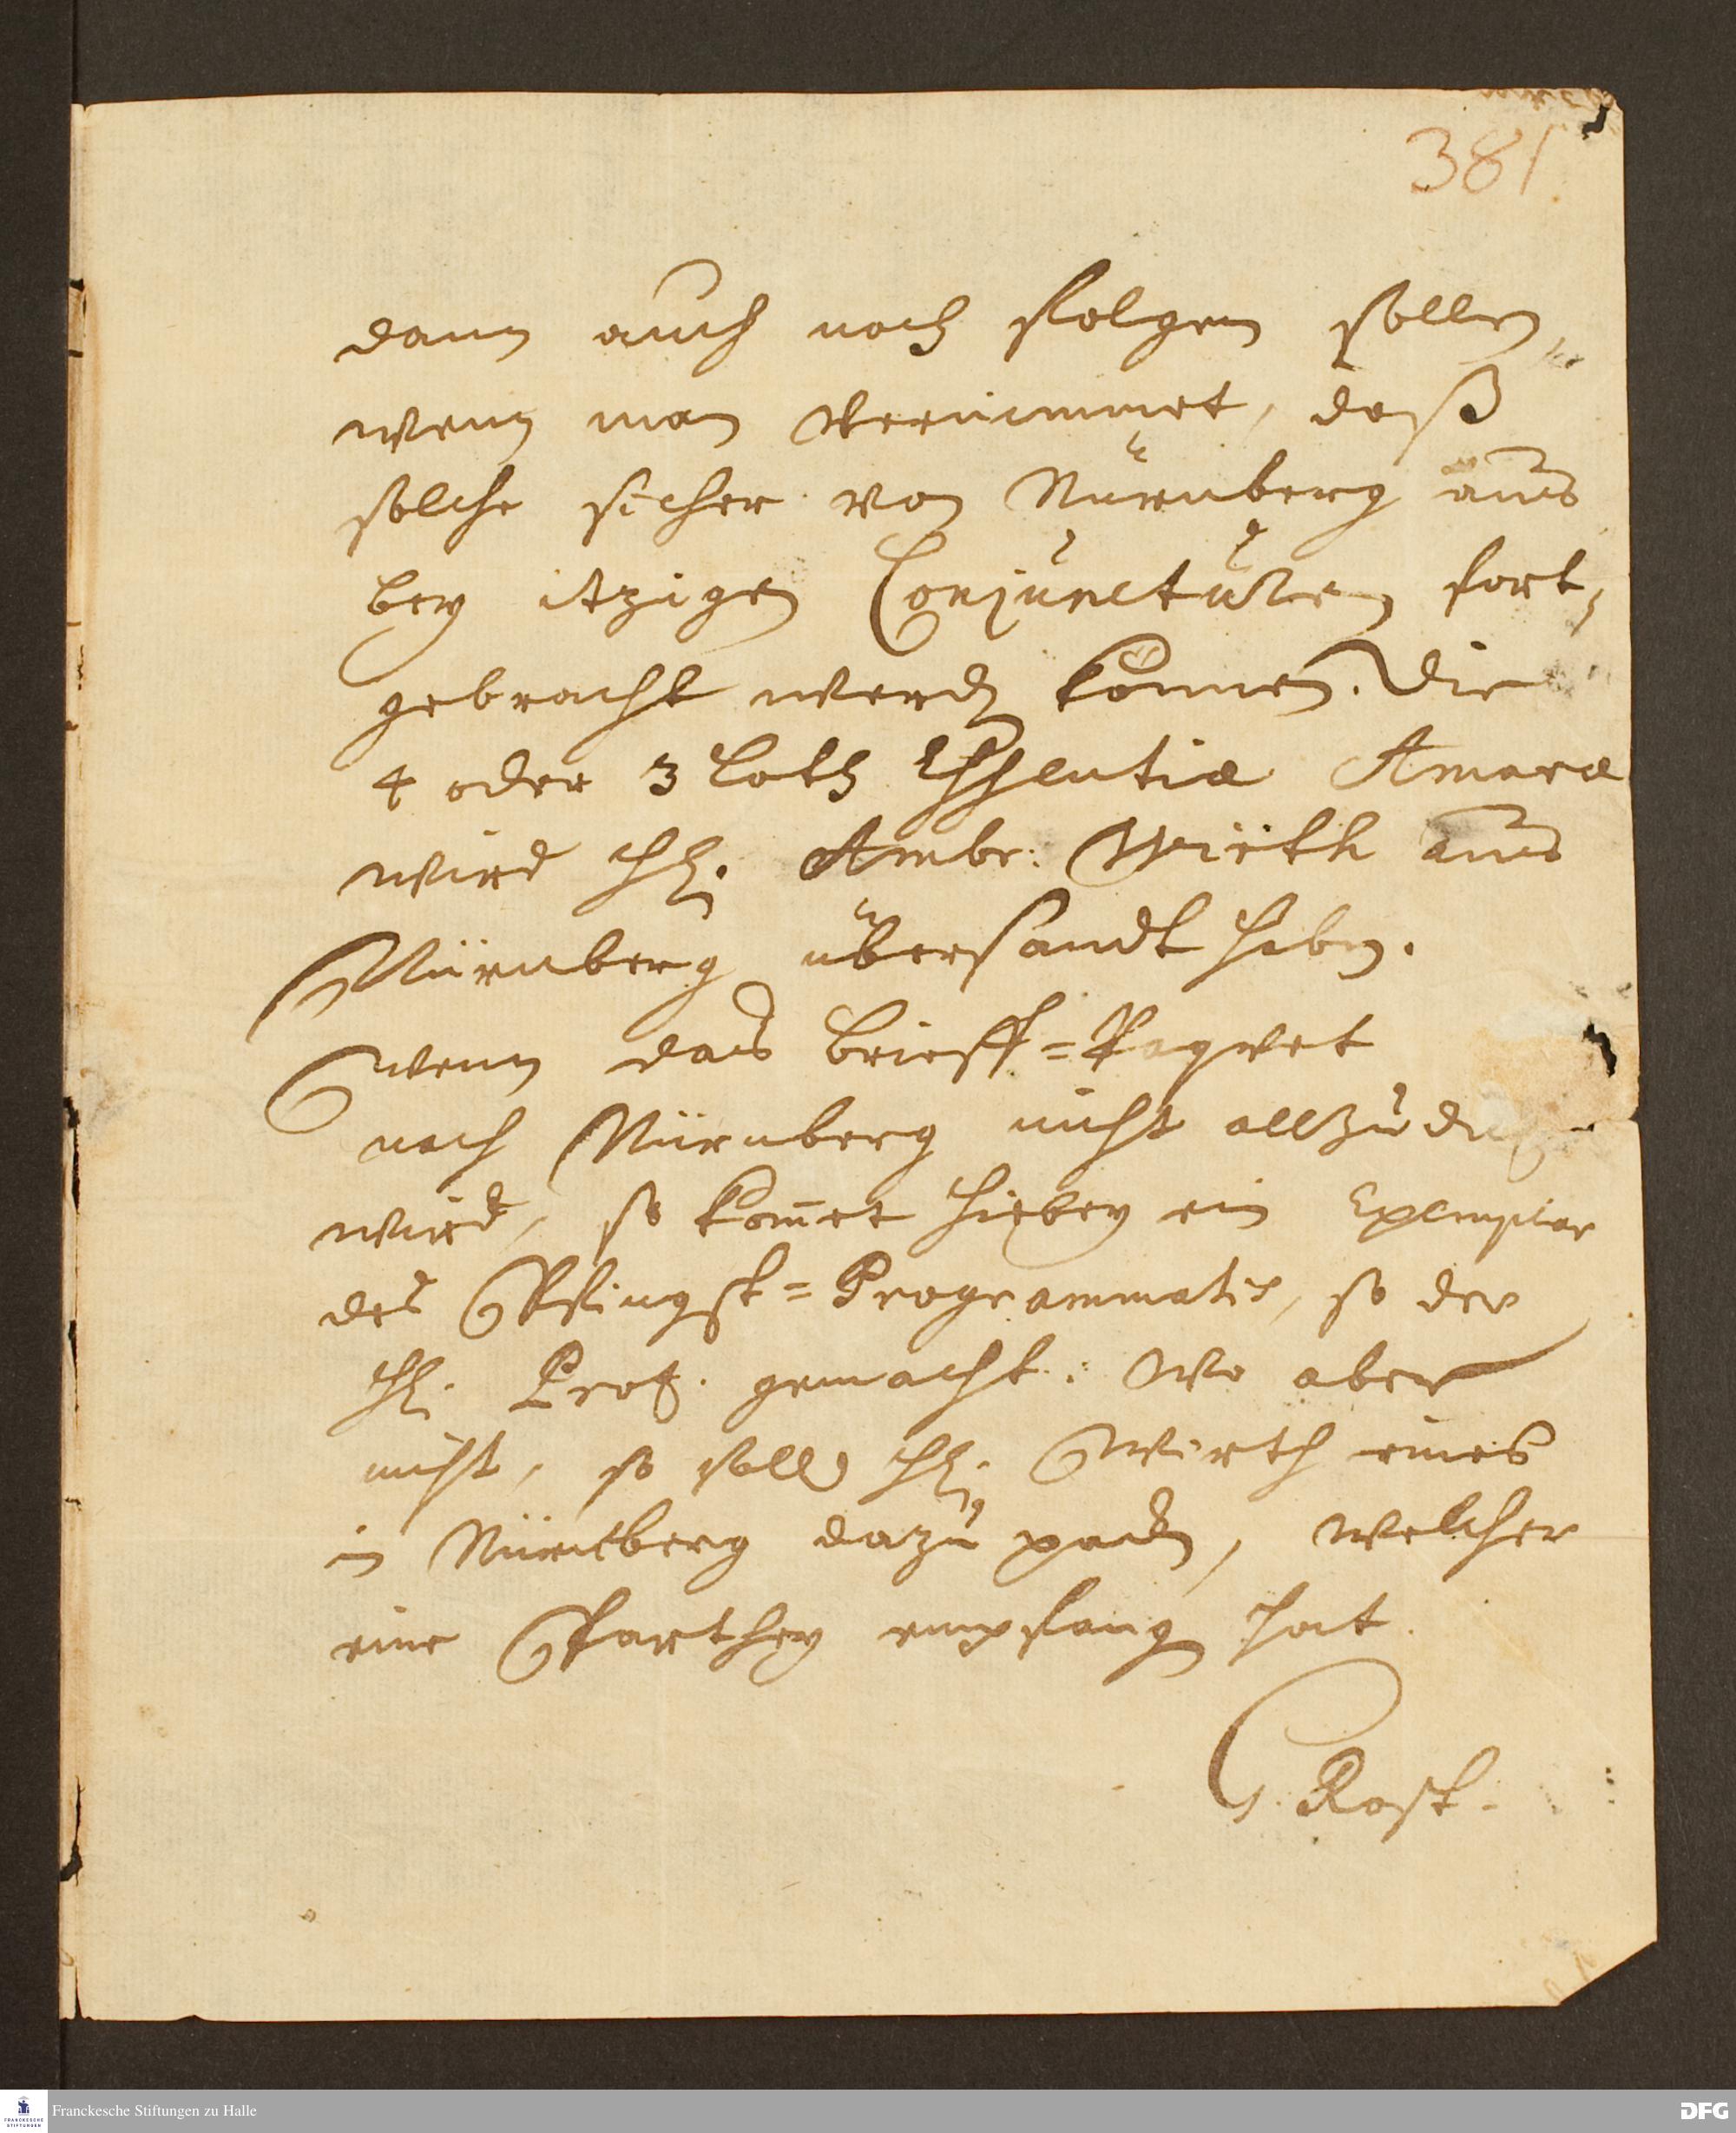 381.
dann auch noch folgen sollen,
wenn man vernimmet, daß
solche sicher von Nürnberg aus
bey itzigen Conjuncturen fort-
gebracht werden können. Die
4 oder 3 Loth Essentiæ Amaræ
wird H. Ambr. Wirth aus
Nürnberg übersandt haben.
Wenn das Brieff=Paqvet
nach Nürnberg nicht allzu
wird, so kom̅et hiebey ein Exemplar
des Pfingst=Programmatis, so der
H. Prof. gemacht: Wo aber
nicht, so soll H. Wirth eines
in Nürnberg dazu packen, welcher
eine Parthey empfangen hat.
G. Rost.
Franckesche Stiftungen zu Halle
DFG